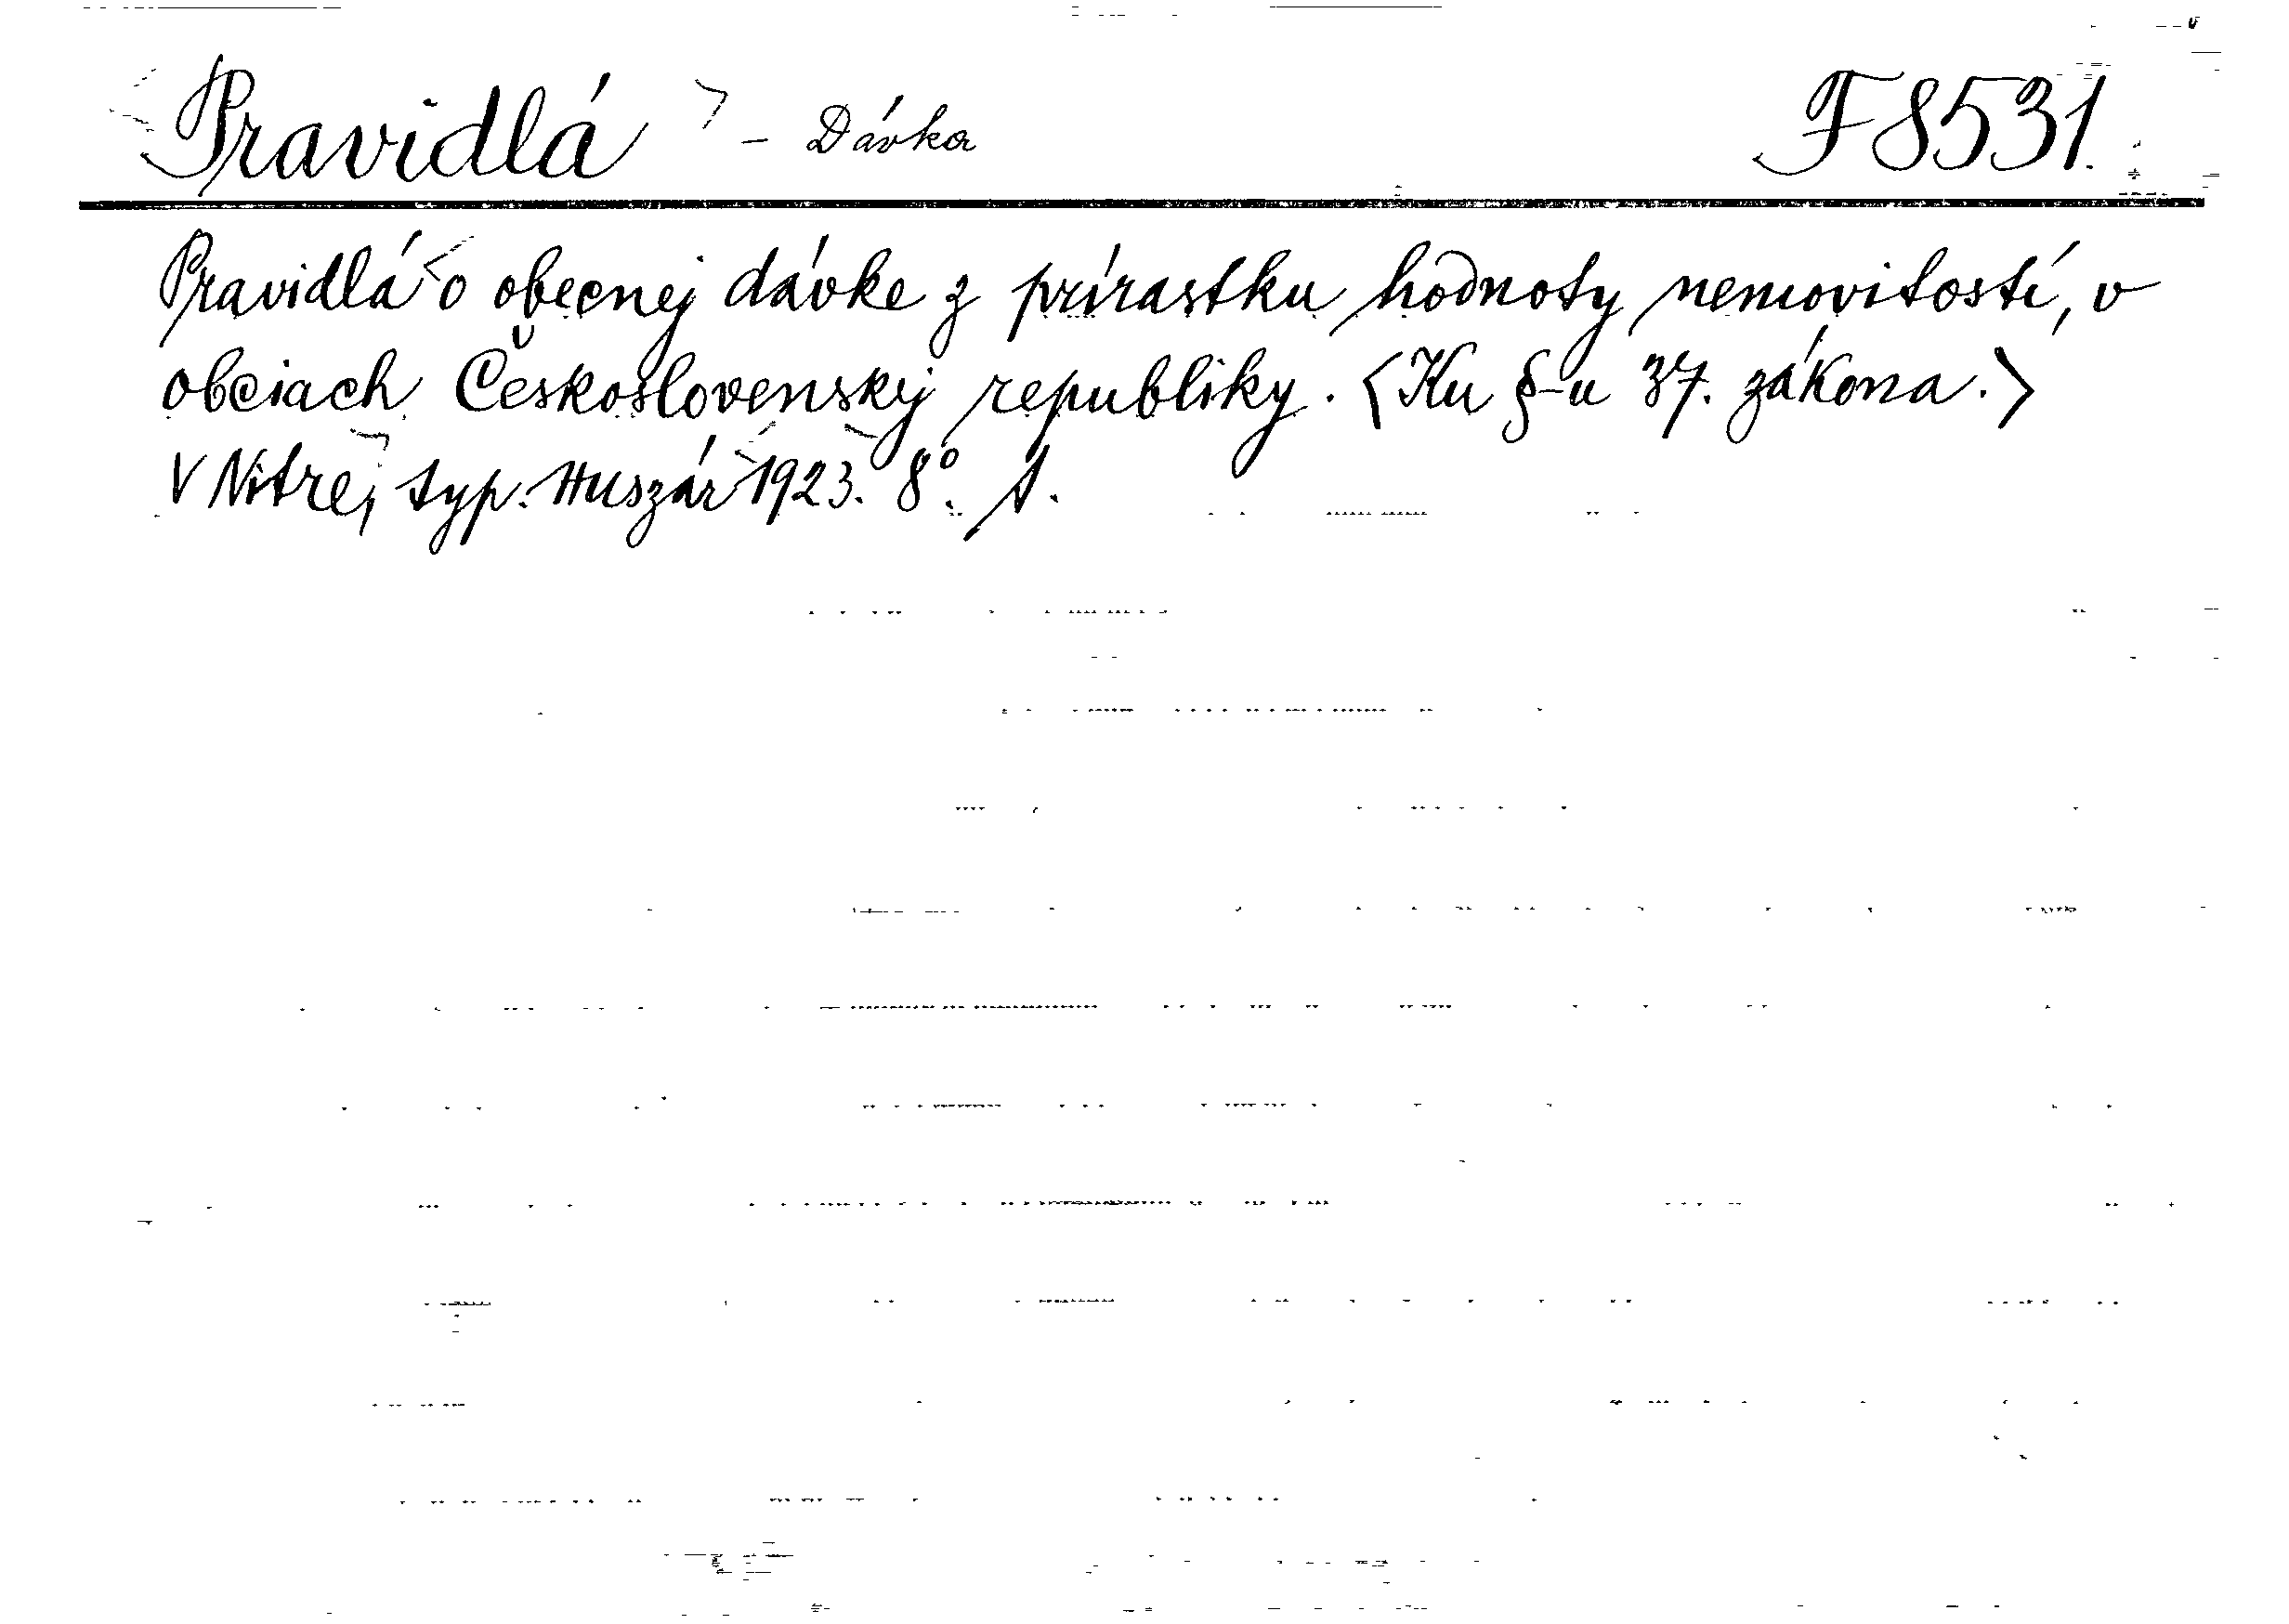 Pravidlá - Dávka F 8531.
Pravidlá o obecnej dávke z prírastku hodnoty nemovitostí, v
obciach Československej republiky. <Ku §-u 37. zákona.>
V Nitre, typ. Huszár 1923. 8°. 1.